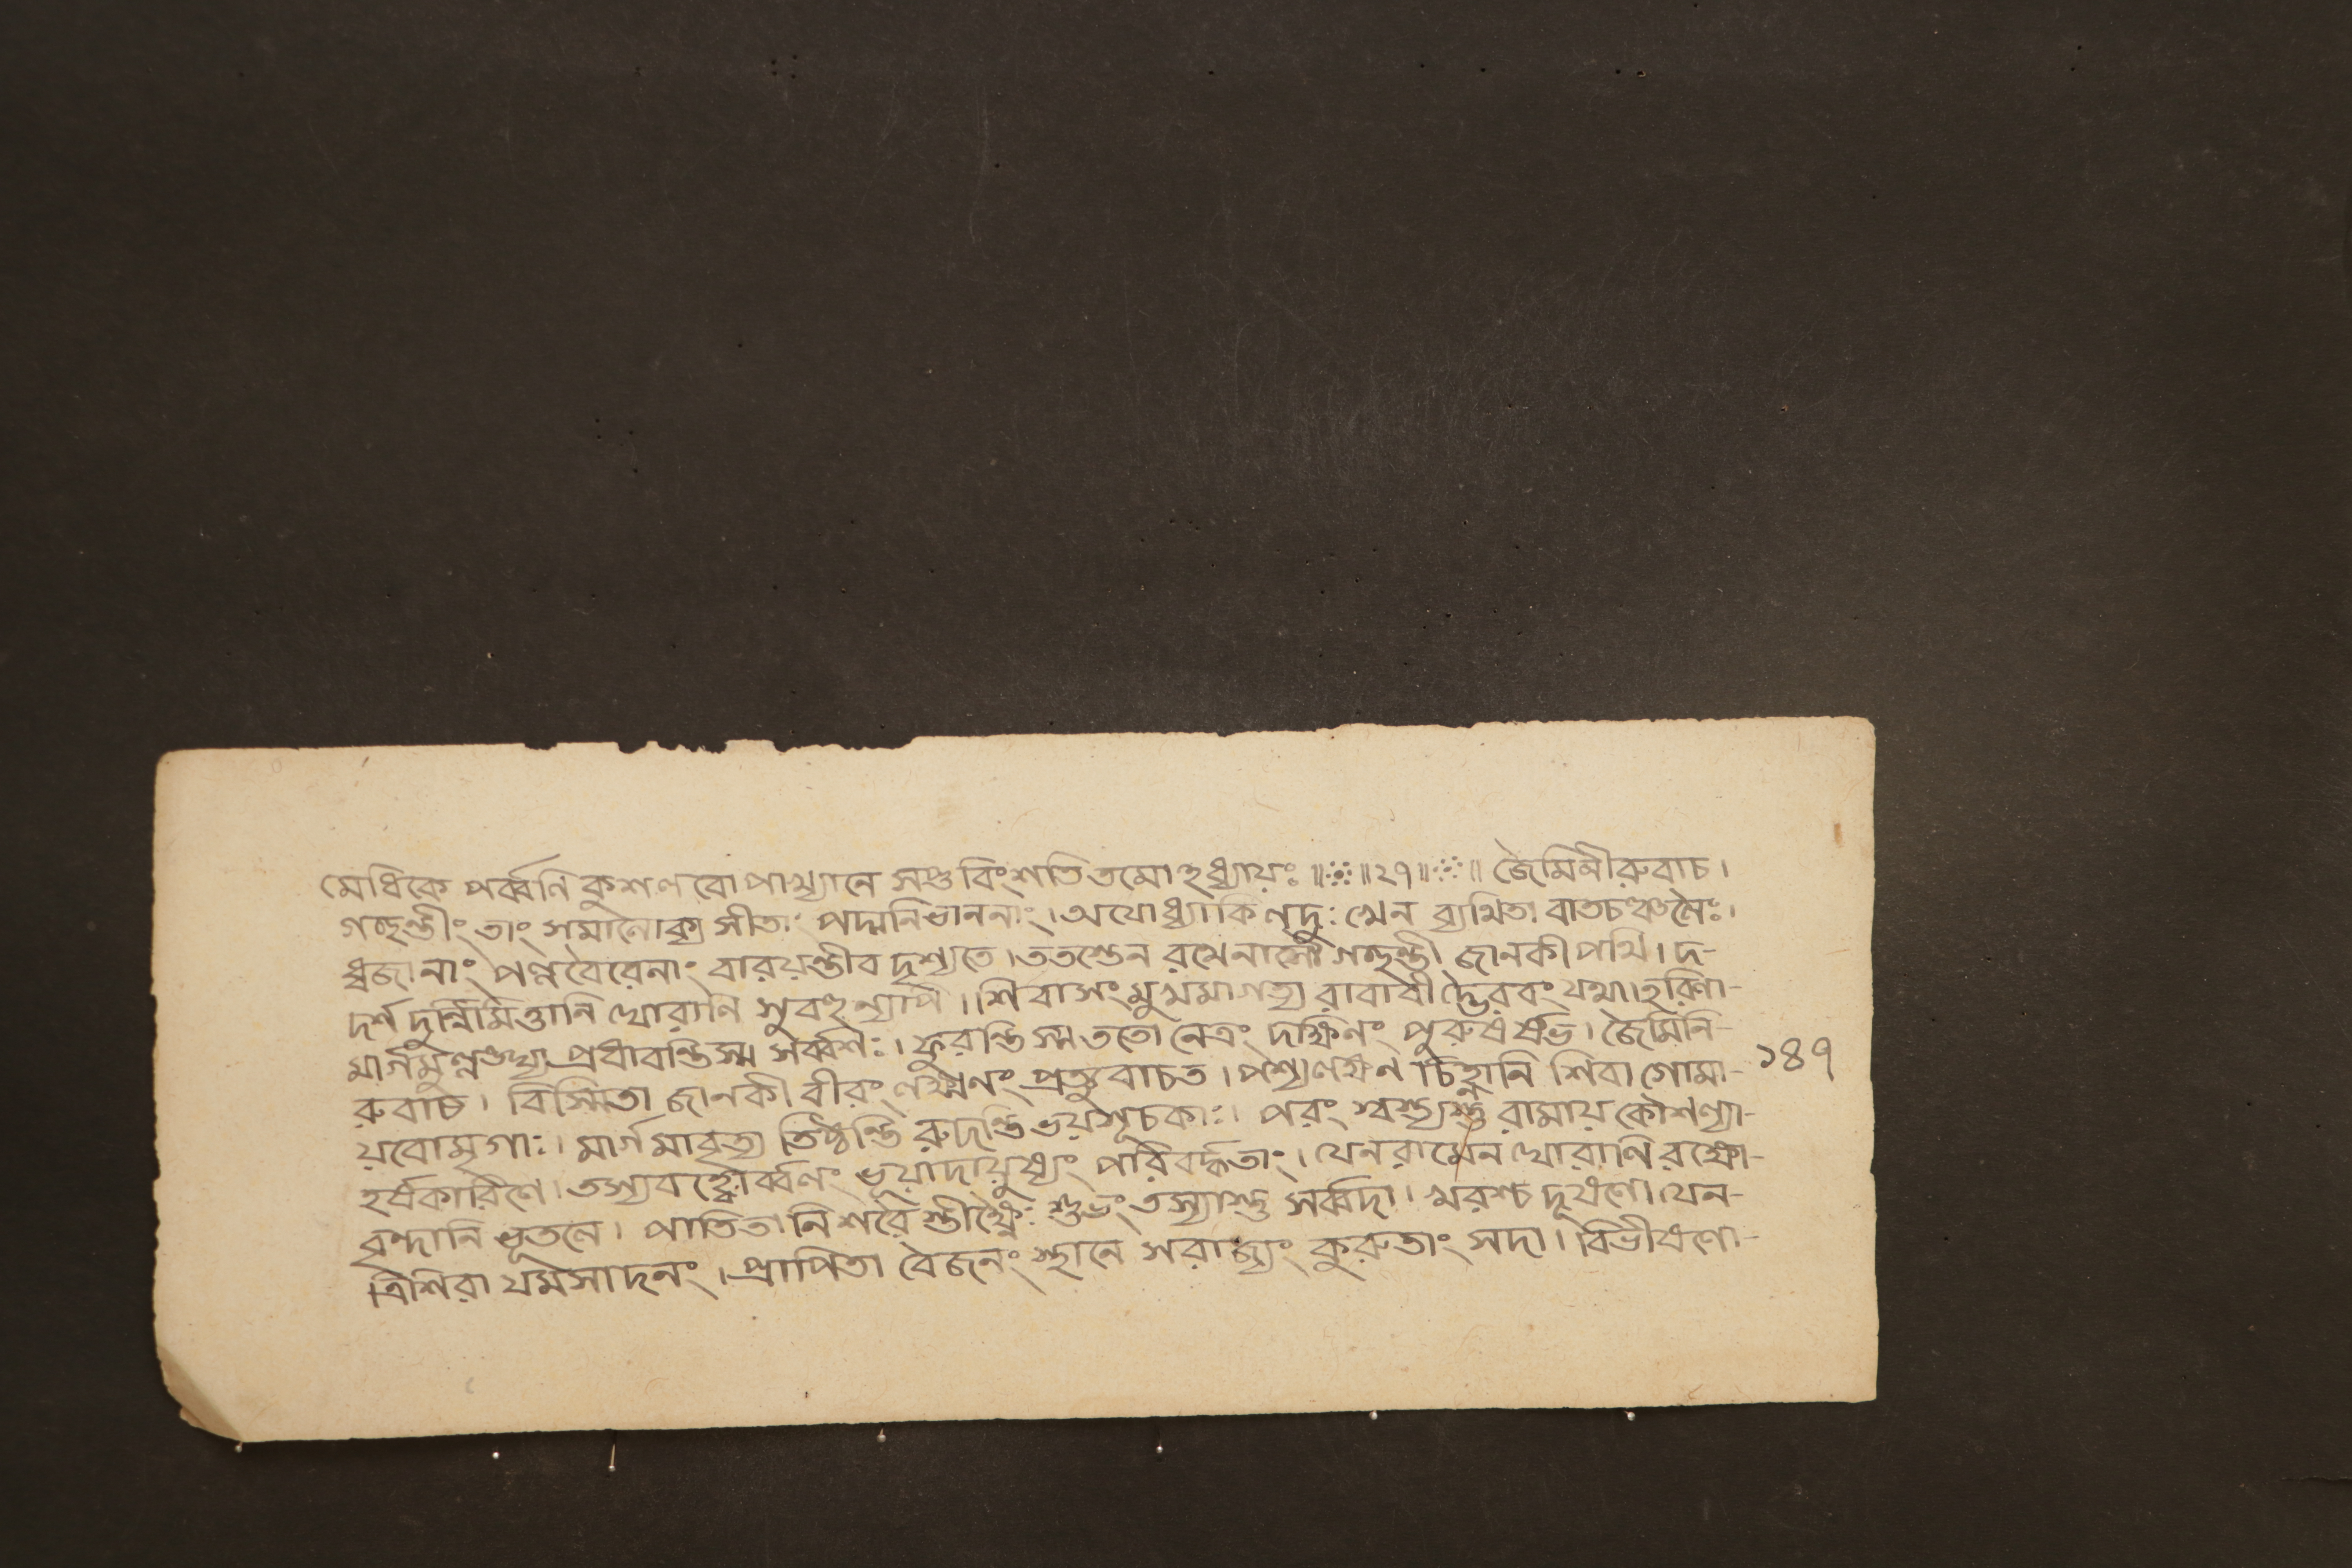 মেধিকে পর্ব্বনি কুশলবোপাখ্যানে সপ্তবিংশতিতমোহধ্যায়ঃ ॥ ২৭ ॥ জৈমিনীরুবাচ।
গচ্ছন্তীং তাং সমালোক্য সীতাং পদ্মনিভাননাং। অযোধ্যাকিলদুঃখেন ব্যথিতা বাতচঞ্চলৈঃ।
ধ্বজানাং পল্লবৈরেনাং বারয়ন্তীব দৃশ্যতে। ততস্তেন রথেনাসৌ গচ্ছন্তী জানকী পথি। দ-
দর্শ দুর্ন্নিমিত্তানি ঘোরানি সুবহুন্যপি। শিবাসংমুখমাগত্য রাবাবীদ্ভৈরবং যথা। হরিণা-
মার্গমুল্লঙ্ঘ্য প্রধাবন্তিস্ম সর্ব্বশঃ। ফুরন্তি স্ম ততো নেত্রং দক্ষিনং পুরুষর্ষভ। জৈমিনি-
রুবাচ। বিস্মিতা জানকী বীরং লক্ষ্মনং প্রত্যুবাচত। পশ্যলক্ষ্মণ চিহ্নানি শিবা গোমা-
য়বোমৃগাঃ। মার্গমাবৃত্য তিষ্ঠন্তি রুদন্তি ভয়সূচকাঃ। পরং স্বস্ত্যস্তু রামায় কৌশল্যা-
হর্ষকারিণে। তস্যবাহ্বোর্ব্বলং ভূয়াদায়ুষ্যং পরিবর্দ্ধতাং। যেনরামেন ঘোরাণি রক্ষো-
বৃন্দানি ভূতলে। পাতিতানি শরৈস্তীক্ষ্ণৈঃ শুভং তস্যাস্তু সর্ব্বদা। খরশ্চ দূষণো যেন-
ত্রিশিরা যমসাদনং। প্রাপিতা বৈজনং স্থানে সরাজ্যং কুরুতাং সদা। বিভীষণো-
১৪৭